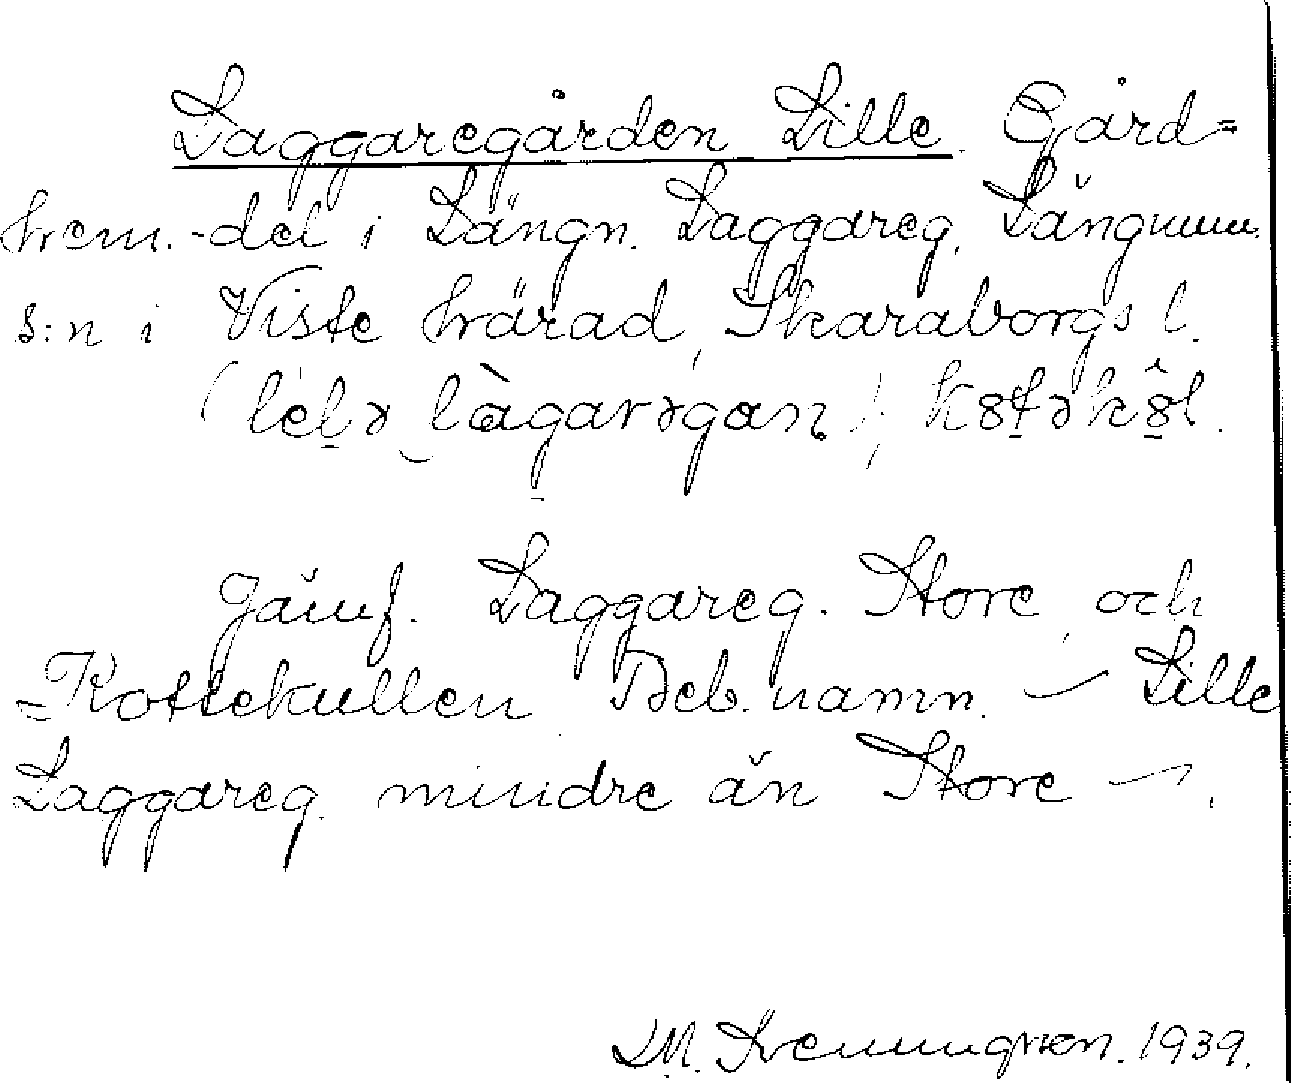 Laggaregården Lille. Gård=
hem.-del i Längn. Laggareg, Längnum
s:n i Viste härad, Skaraborgs l.
Jämf. Laggareg. Store, och
=Kottekullen. Beb.namn. — Lille
Laggareg. mindre än Store —.
1939.